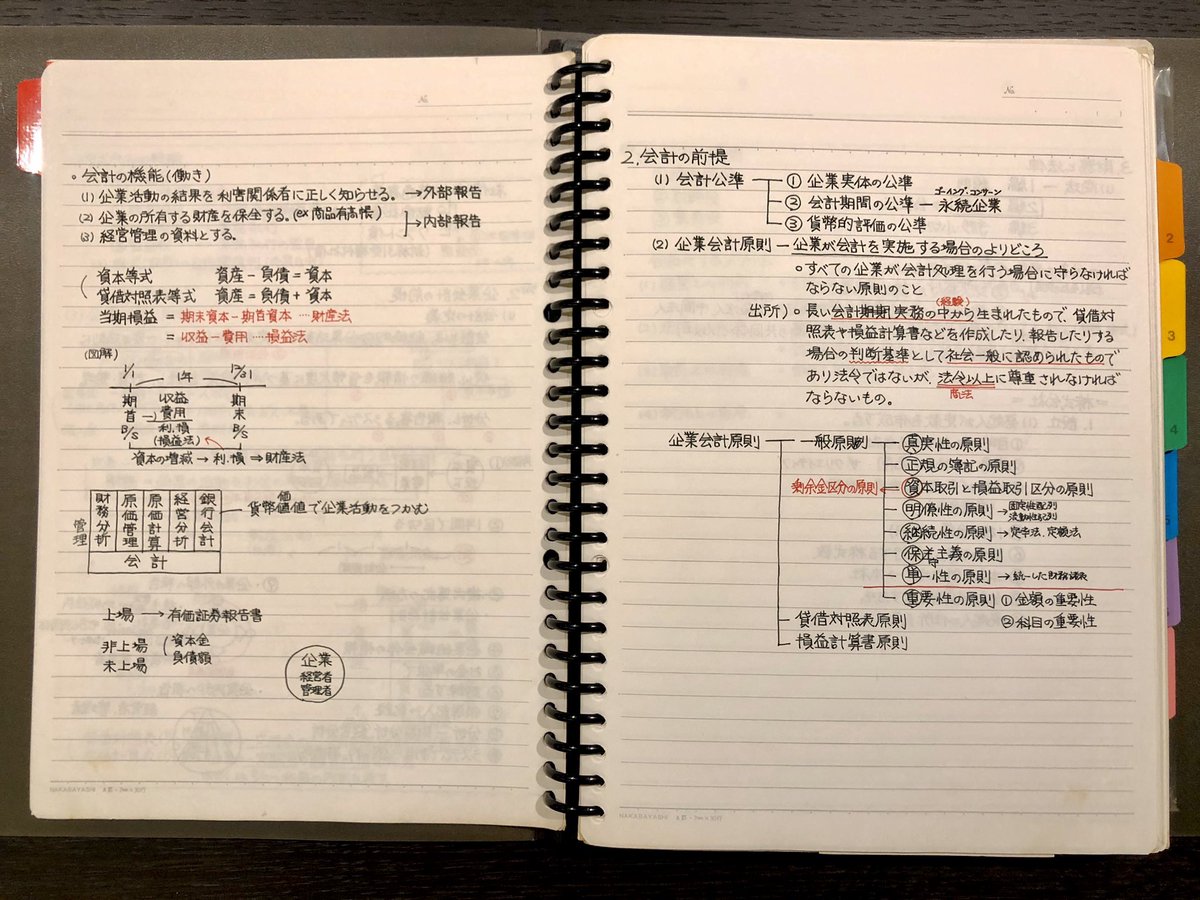 No.
。会計の機能(働き)
(1) 企業活動の結果を利害関係者に正しく知らせる。→外部報告
(2) 企業の所有する財産を保全する。(ex 商品有高帳)
→内部報告
(3) 経営管理の資料とする。
資本等式 資産-負債=資本
貸借対照表等式 資産=負債+資本
当期損益 = 期末資本-期首資本…財産法
= 収益-費用…損益法
(図解)
1/1 1年 12/31
期首B/S 収益 期末B/S
-)費用
利.損
(損益法)
資本の増減→利・損⇒財産法
管理
財務分析 原価管理 原価計算 経営分析 銀行会計
会計
価
貨幣値で企業活動をつかむ
上場 → 有価証券報告書
非上場 (資本金
未上場 負債額
企業
経営者
管理者
NAKABAYASHI A罫-7mm×30行
No.
2.会計の前提
(1) 会計公準 ① 企業実体の公準
ゴーイング・コンサーン
② 会計期間の公準 - 永続企業
③ 貨幣的評価の公準
(2) 企業会計原則 - 企業が会計を実施する場合のよりどころ
。すべての企業が会計処理を行う場合に守らなければ
ならない原則のこと
(経験)
出所)。長い会計期期実務の中から生まれたもので、貸借対
照表や損益計算書などを作成したり、報告したりする
場合の判断基準として社会一般に認められたもので
あり法令ではないが、法令以上に尊重されなければ
商法
ならないもの。
企業会計原則 一般原則 真実性の原則
正規の簿記の原則
剰余金区分の原則 資本取引と損益取引区分の原則
明瞭性の原則→固定性配列
流動性配列
継続性の原則→定率法、定額法
保守主義の原則
守
単一性の原則 →統一した財務諸表
重要性の原則 ①金額の重要性
貸借対照表原則 ②科目の重要性
損益計算書原則
NAKABAYASHI A罫-7mm×30行
2
3
4
5